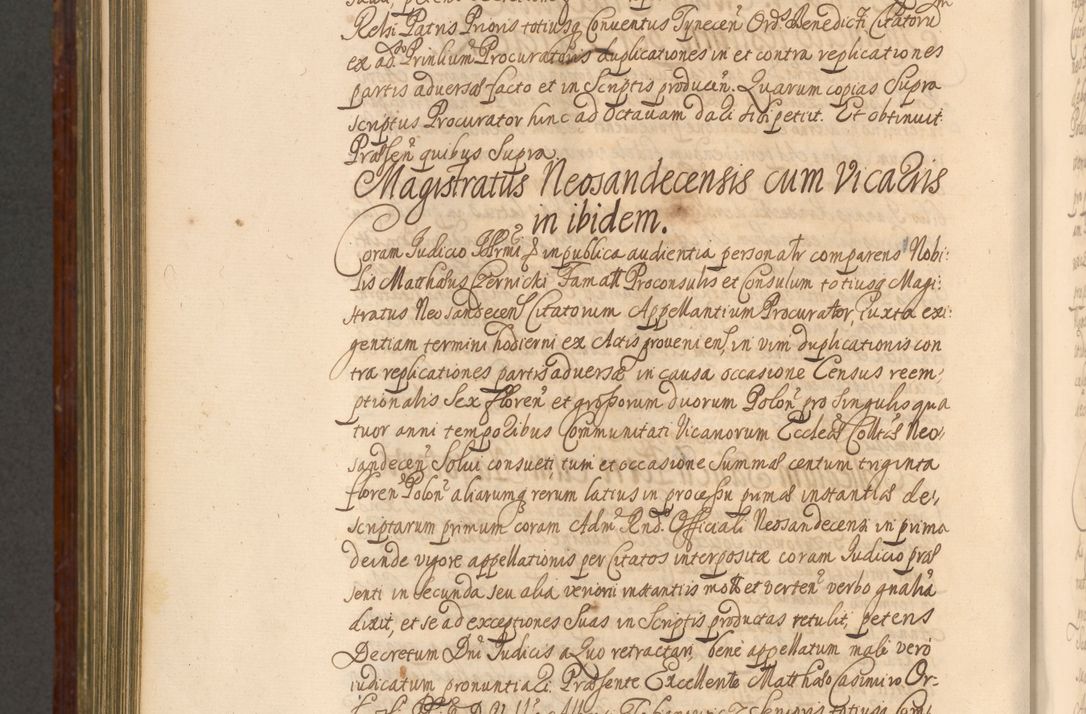 Relsi Patris Prioris totiusq Conventus Tynecen Ords Benedicti Citatorū
ex ad Prinlium Procuratoris duplicationes in et contra replicationes
partis adversæ facto et in Scriptis producen. Quarum copias Supra
scriptus Procurator hinc ad octavam dari sibi petiit. Et obtinuit
Præsen quibus Supra.
Magistratus Neosandecensis cum Vicariis
in ibidem.
Coram Judicio in publica audientia personalr comparens Nobi:
lis Matthæus Czernicki Famatt Proconsulis et Consulum totiusq Magi:
stratus Neosandecens Citatorum Appellantium Procurator, Juxta exi:
gentiam termini hodierni ex Actis provenien, in vim duplicationis con
tra replicationes partis adversæ in causa occasione Census reem:
ptionalis Sex floren et grossorum duorum Polon pro singulis qua
tuor anni temporibus Communitati Vicariorum Ecclesæ Colltæ Neo:
sandecen Solvi consueti, tum et occasione Summæ centum triginta
floren Polon aliarumq rerum latius in processu primæ instantiæ de:
scriptarum primum coram Adm Rnd Officiali Neosandecensi in prima
deinde vigore appellationis per Citatos interpositæ coram Judicio præ
senti in secunda seu alia veriori instantiis mott et verten verbo gnalia
dixit, et se ad exceptiones Suas in Scriptis productas retulit, petens
Decretum Dni Judicis a Quo retractari, bene appellatum male vero
iudicatum pronuntiari. Præsente Excellente Matthæo Casimiro Or-